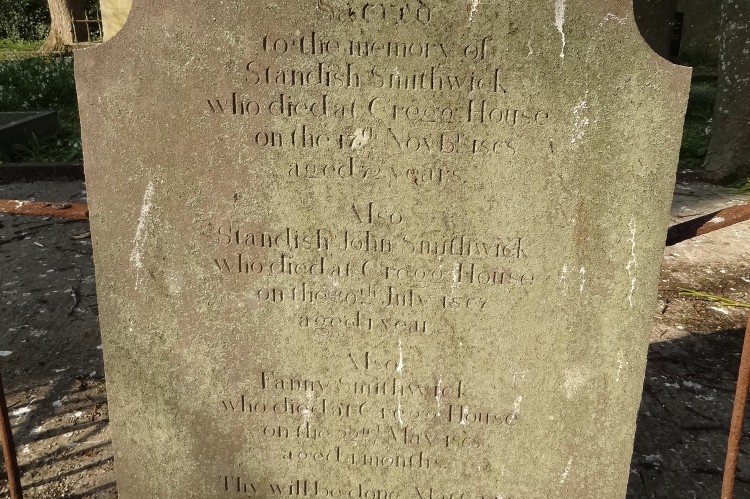 Sacred
to the memory of
Standish Smithwick
who died at Cregg House
on the
aged 72 years.
Also
Standish John Smithwick
who died at Cregg House
on the 20th July
aged 1 year.
Also
Fanny Smithwick
who died at Cregg House
on the May
aged months.
Thy will be done